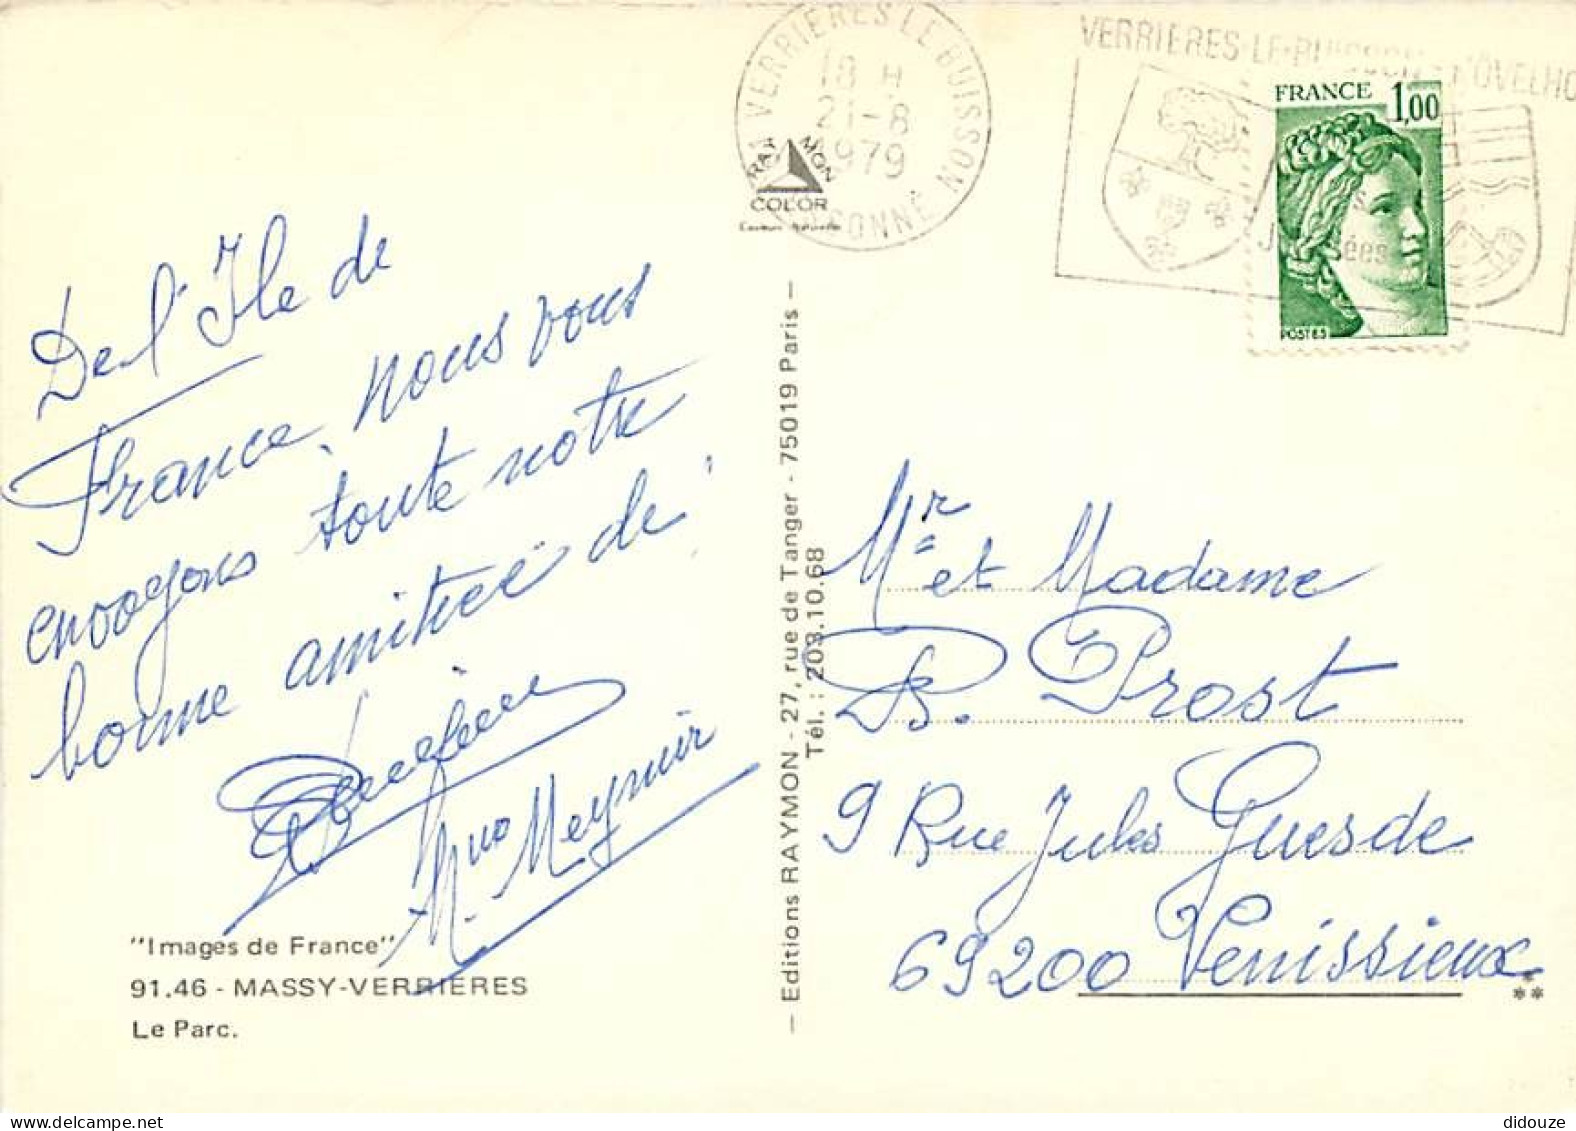 VERRIERES LE BUISSON
18 H
21-8
1979
ESSONNE
VERRIERES-LE-BUISSON - HÖVELHO
Jumelées
FRANCE 1,00
POSTES
RAYMON
COLOR
De l'Ile de
France, nous vous
envoyons toute notre
bonne amitiée de !
"Images de France"
91.46 - MASSY-VERRIERES
Le Parc.
— Editions RAYMON - 27, rue de Tanger - 75019 Paris —
Tél. : 203.10.68
Mr et Madame
B. Prost
9 Rue Jules Guesde
69200 Venissieux
didouze